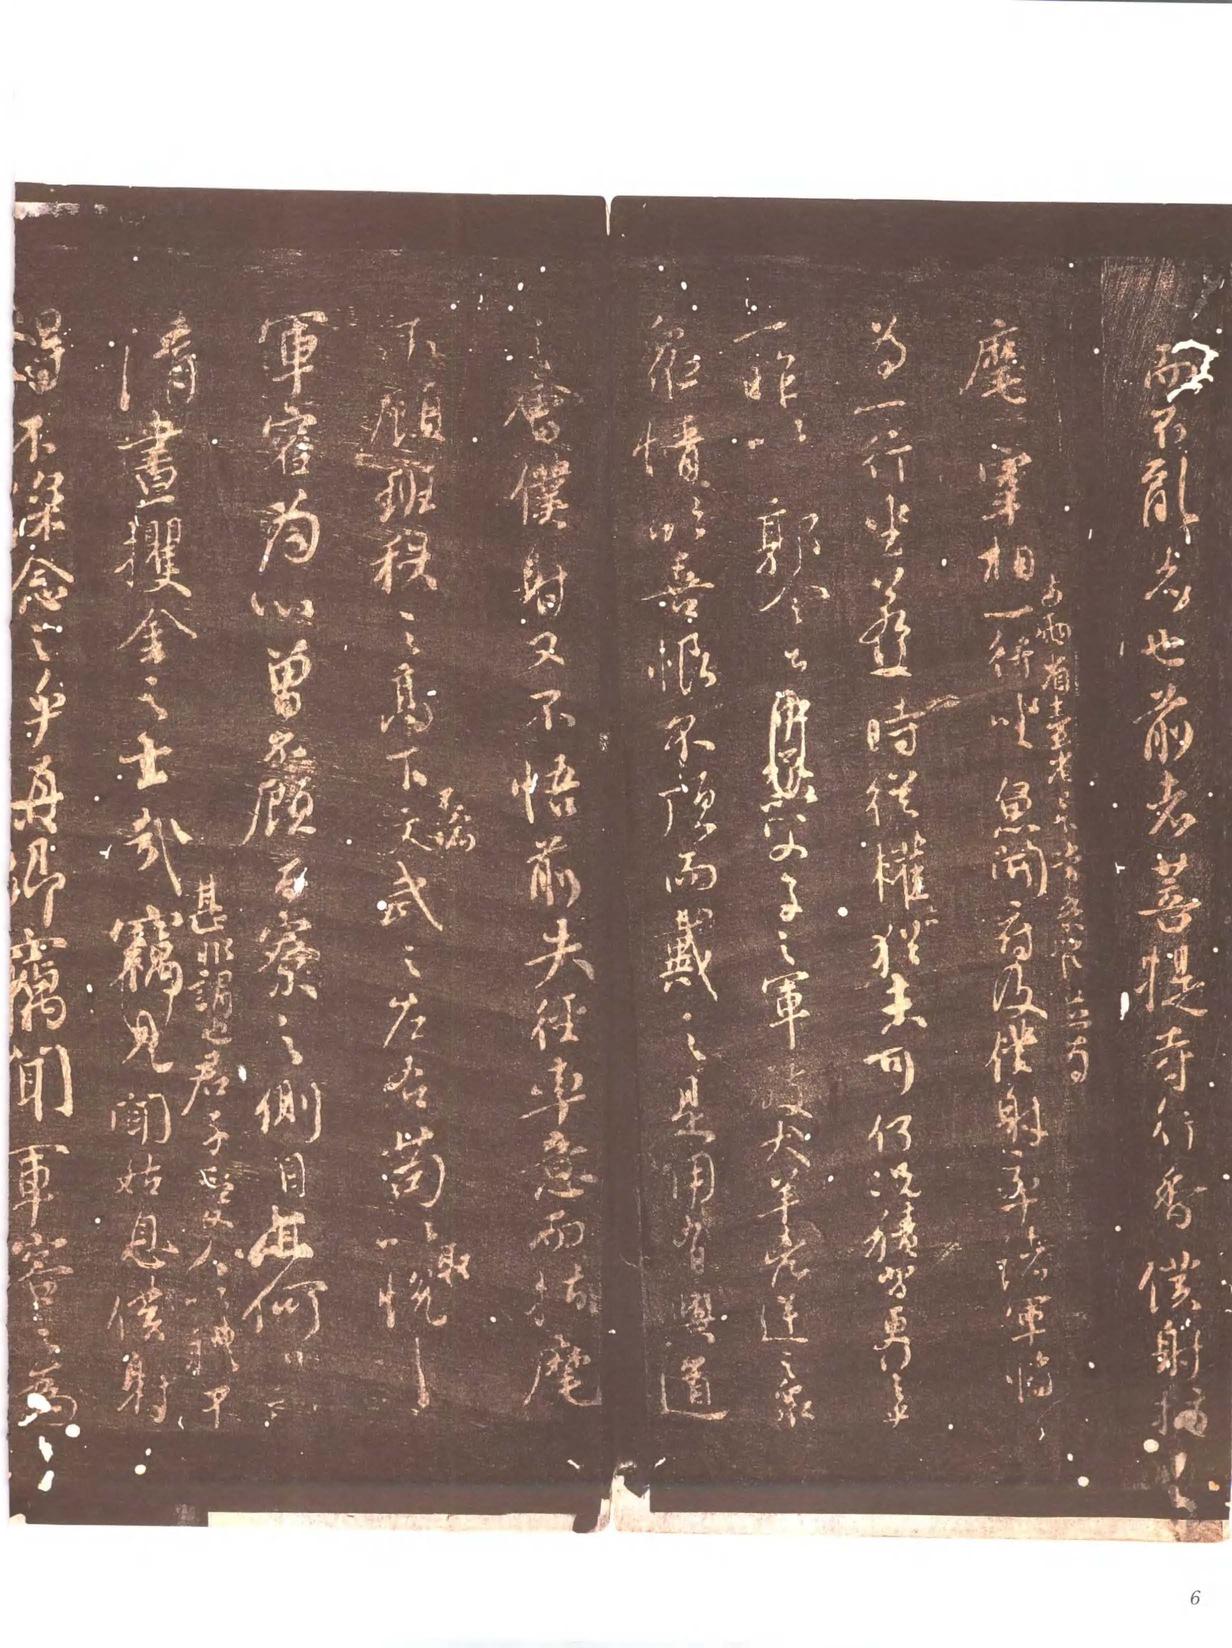 而不亂者也前者菩提寺行香僕射指
與兩省臺省已下常參官並為
麾宰相一行坐魚開府及僕射率諸軍將
為一行坐若一時從權亦猶未可何況積習更行之乎
一昨以郭令公以父子之軍破犬羊凶逆之眾
眾情欣喜恨不頂而戴之是用有興道
之會僕射又不悟前失徑率意而指麾
不顧班秩之高下不論文武之左右苟以取悅
軍容為心曾不顧百寮之側目亦何異
甚非謂也君子愛人以禮
清晝攫金之士哉竊見聞姑息僕射
得不深念之乎真卿竊聞軍容之為
6